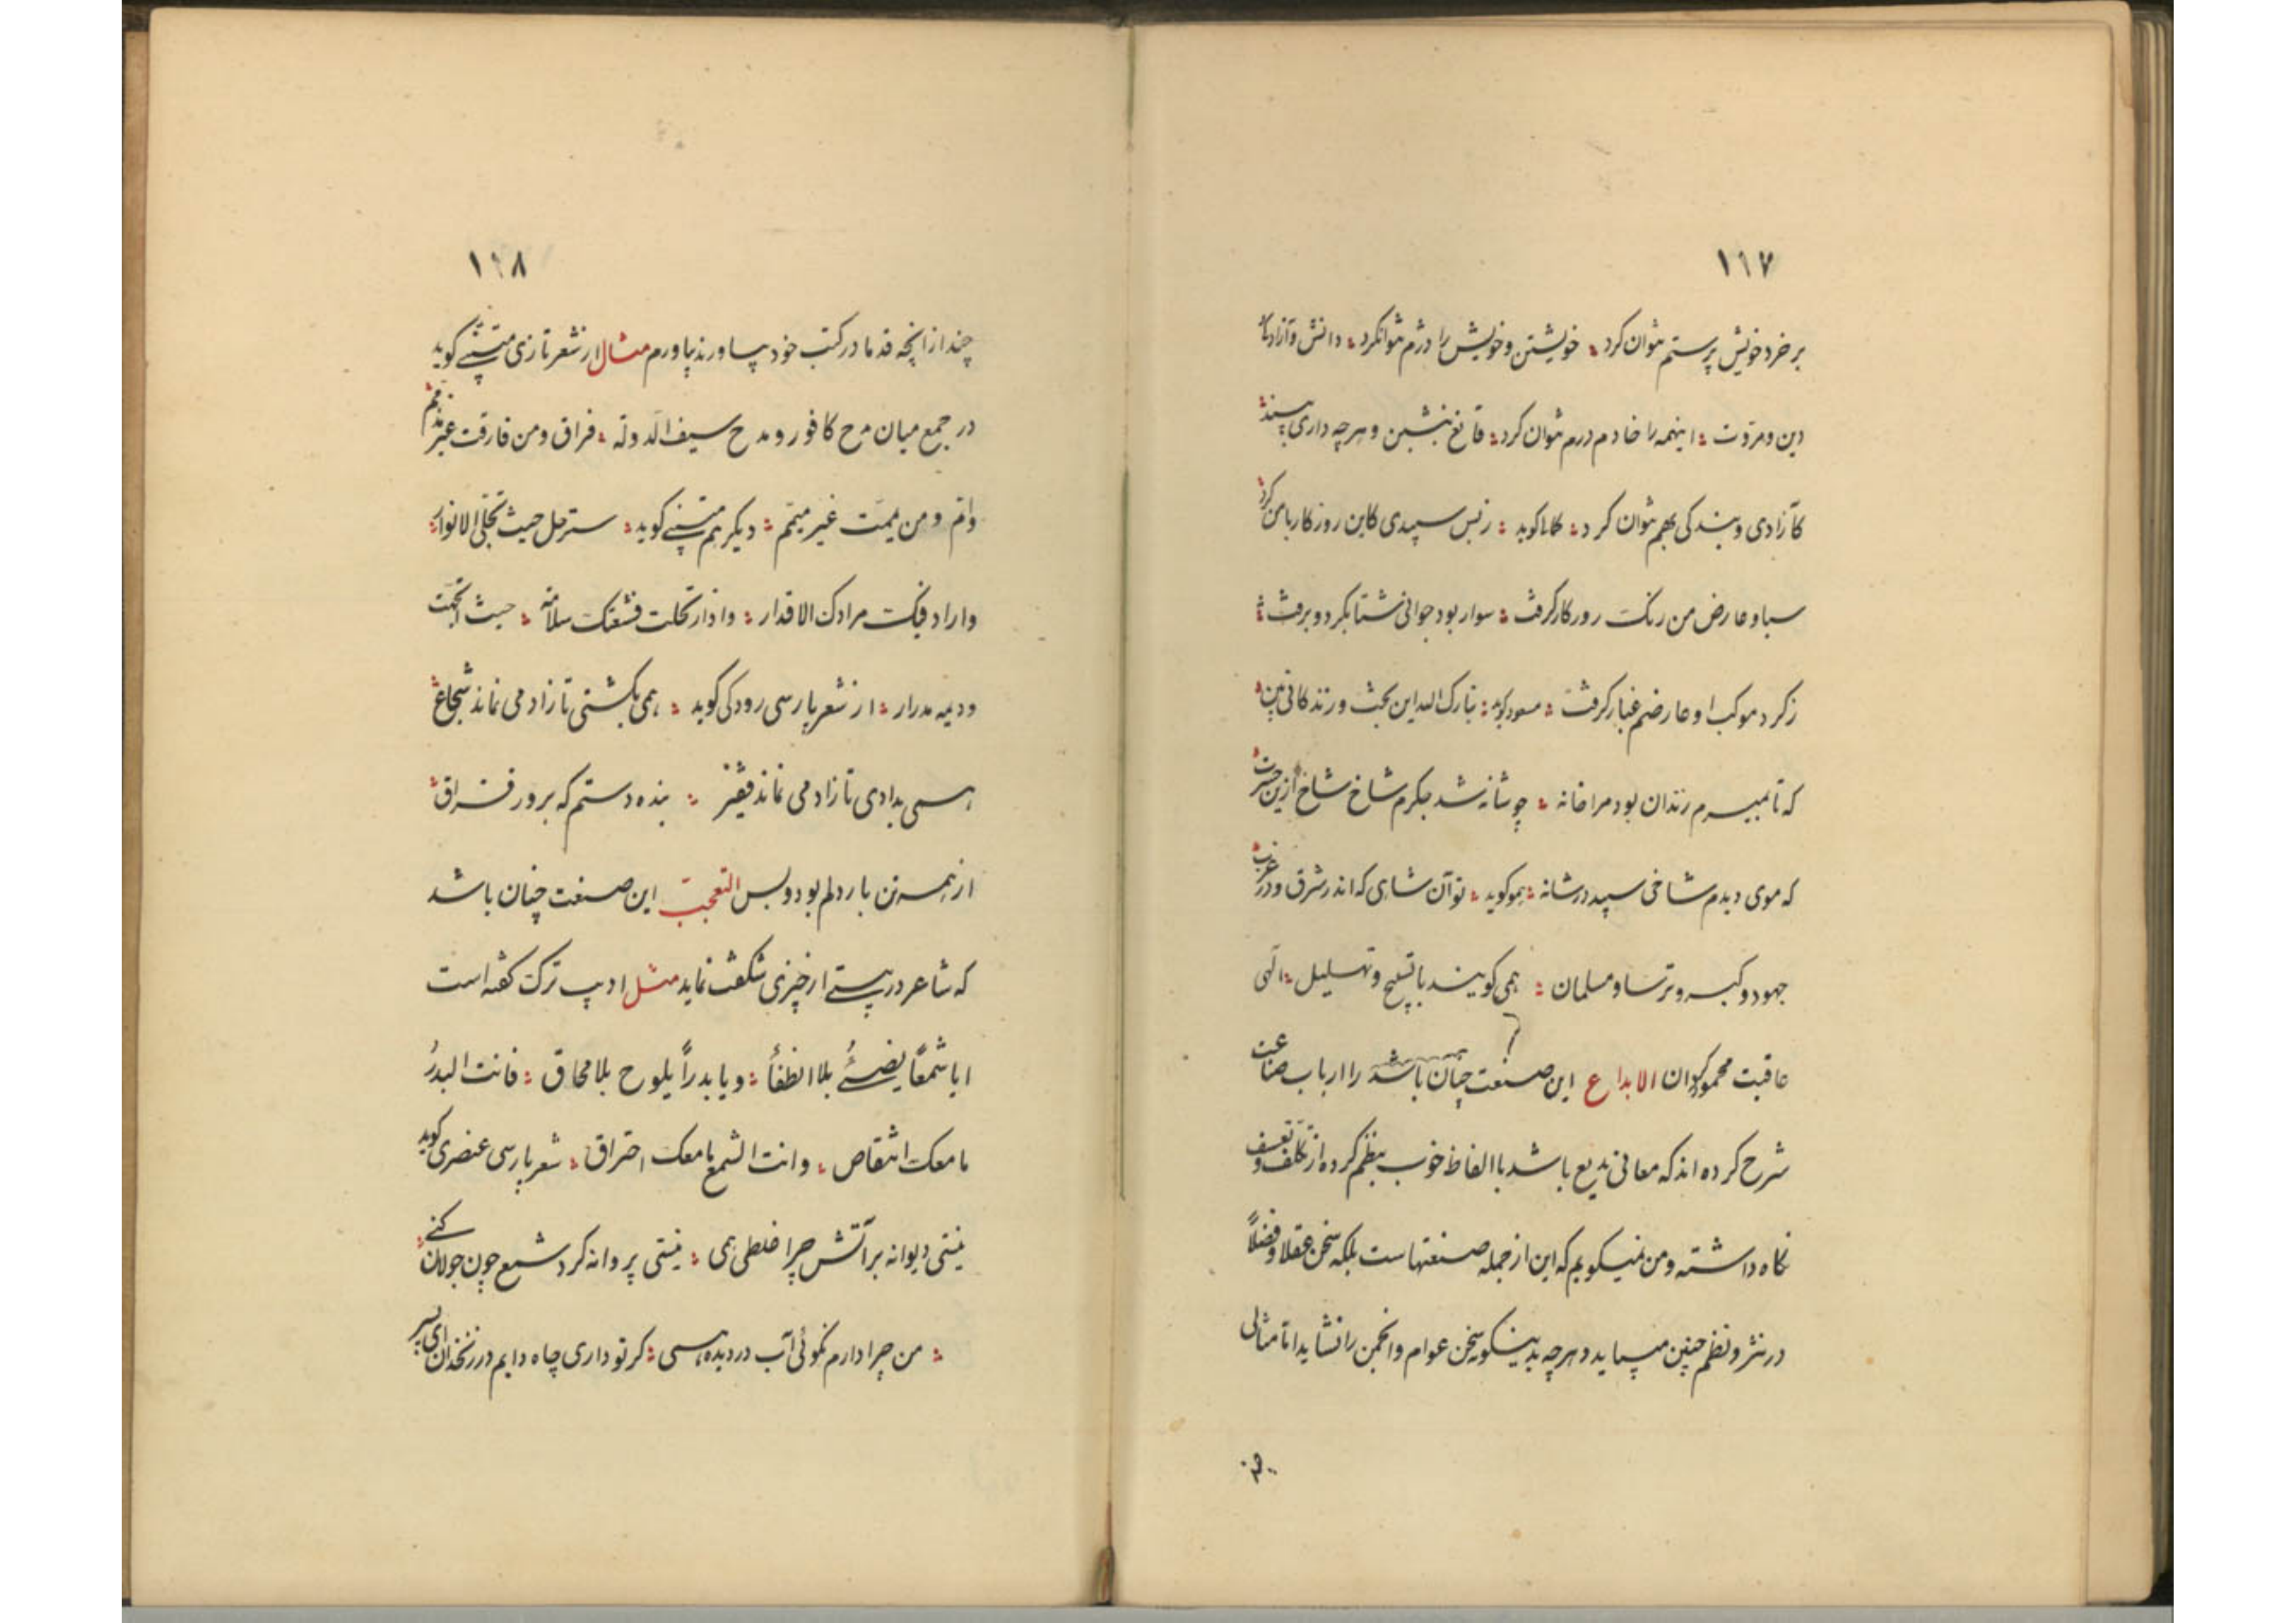 ۱۱۷
بر خرد خویش بر ستم نتوان کرد ؞ خویشتن و خویش را دژم نتوانکرد ؞ دانش و آزادگی
دین و مروت ؞ اینهمه را خادم درم نتوان کرد ؞ قانع بنشین و هرچه داری بپسند ؞
کآزادی و بندگی بهم نتوان کرد ؞ کوید ؞ ز بس سپیدی کاین روزکار با من کرد ؞
سیاه عارض من رنک روزکار کرفت ؞ سوار بود جوانی شتاب کرد و برفت ؞
ز کرد موکب او عارضم غبار کرفت ؞ مسعود کوید ؞ تبارک الله این بخت و زندکانی بین ؞
که تا بمیرم زندان بود مرا خانه ؞ چو شانه شد جکرم شاخ شاخ ازین حسرت ؞
که موی دیدم شاخی سپید در شانه ؞ هموکوید ؞ تو آن شاهی که اندر شرق و در غرب ؞
جهود و کبر و ترسا و مسلمان ؞ همی کویند با تسبیح و تهلیل ؞ الهی
عاقبت محمود کردان الابداع این صنعت چنان باشد را ارباب صناعت
شرح کرده اند که معانی بدیع باشد با الفاظ خوب بنظم کرده از تکلف و تعسف
نکاه داشته و من نمیکویم که این از جمله صنعتهاست بلکه سخن عقلا و فضلا
در نثر و نظم چنین میباید و هرچه بدینکونه سخن عوام و انجمن را نشاید اما مثالی
چند
۱۱۸
چند از انچه قدما در کتب خود بیاورند بیاورم مثال از شعر تازی متنبی کوید
در جمع میان مدح کافور و مدح سیف الدوله ؞ فراق و من فارقت غیر مذمم ؞
وام و من یممت غیر میمم ؞ دیکر هم متنبی کوید ؞ سر حل حیث تحله الانوار ؞
واراد فیک مرادک الاقدار ؞ واذا ارتحلت فشعتک سلامة ؞ حیث اتجهت
ودیمه مدرار ؞ از شعر پارسی رودکی کوید ؞ همی بکشتی تا زاد می نماند شجاع ؞
همی بدادی تا زاد می نماند فقیر ؞ بنده دستم که بروز فراق ؞
از همه تن یار دلم بود و بس التعجب این صنعت چنان باشد
که شاعر در بیتی از چیزی شکفت نماید مثل ادیب ترک کفته است
ایا شمعاً یضیئ بلا انطفأ ؞ ویا بدراً یلوح بلا محاق ؞ فانت البدرُ
ما معک انتقاص ؞ وانت الشمع ما معک احتراق ؞ شعر پارسی عنصری کوید
نیستی دیوانه بر آتش چرا غلطی همی ؞ نیستی پروانه کرد شمع چون جولان کنی ؞
؞ من چرا دارم نکوئی آب در دیده همی ؞ کر تو داری چاه دایم در زنخدان ای پسر